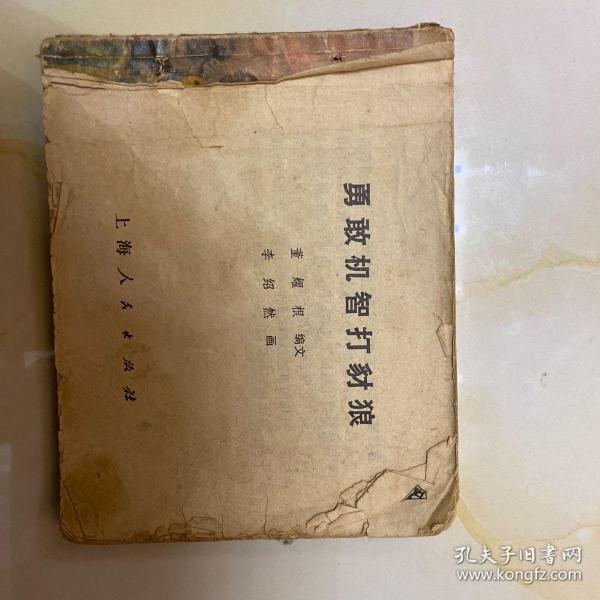 勇敢机智打豺狼
董耀根 编文
李绍然 画
上海人民出版社
孔夫子旧书网
www.kongfz.com